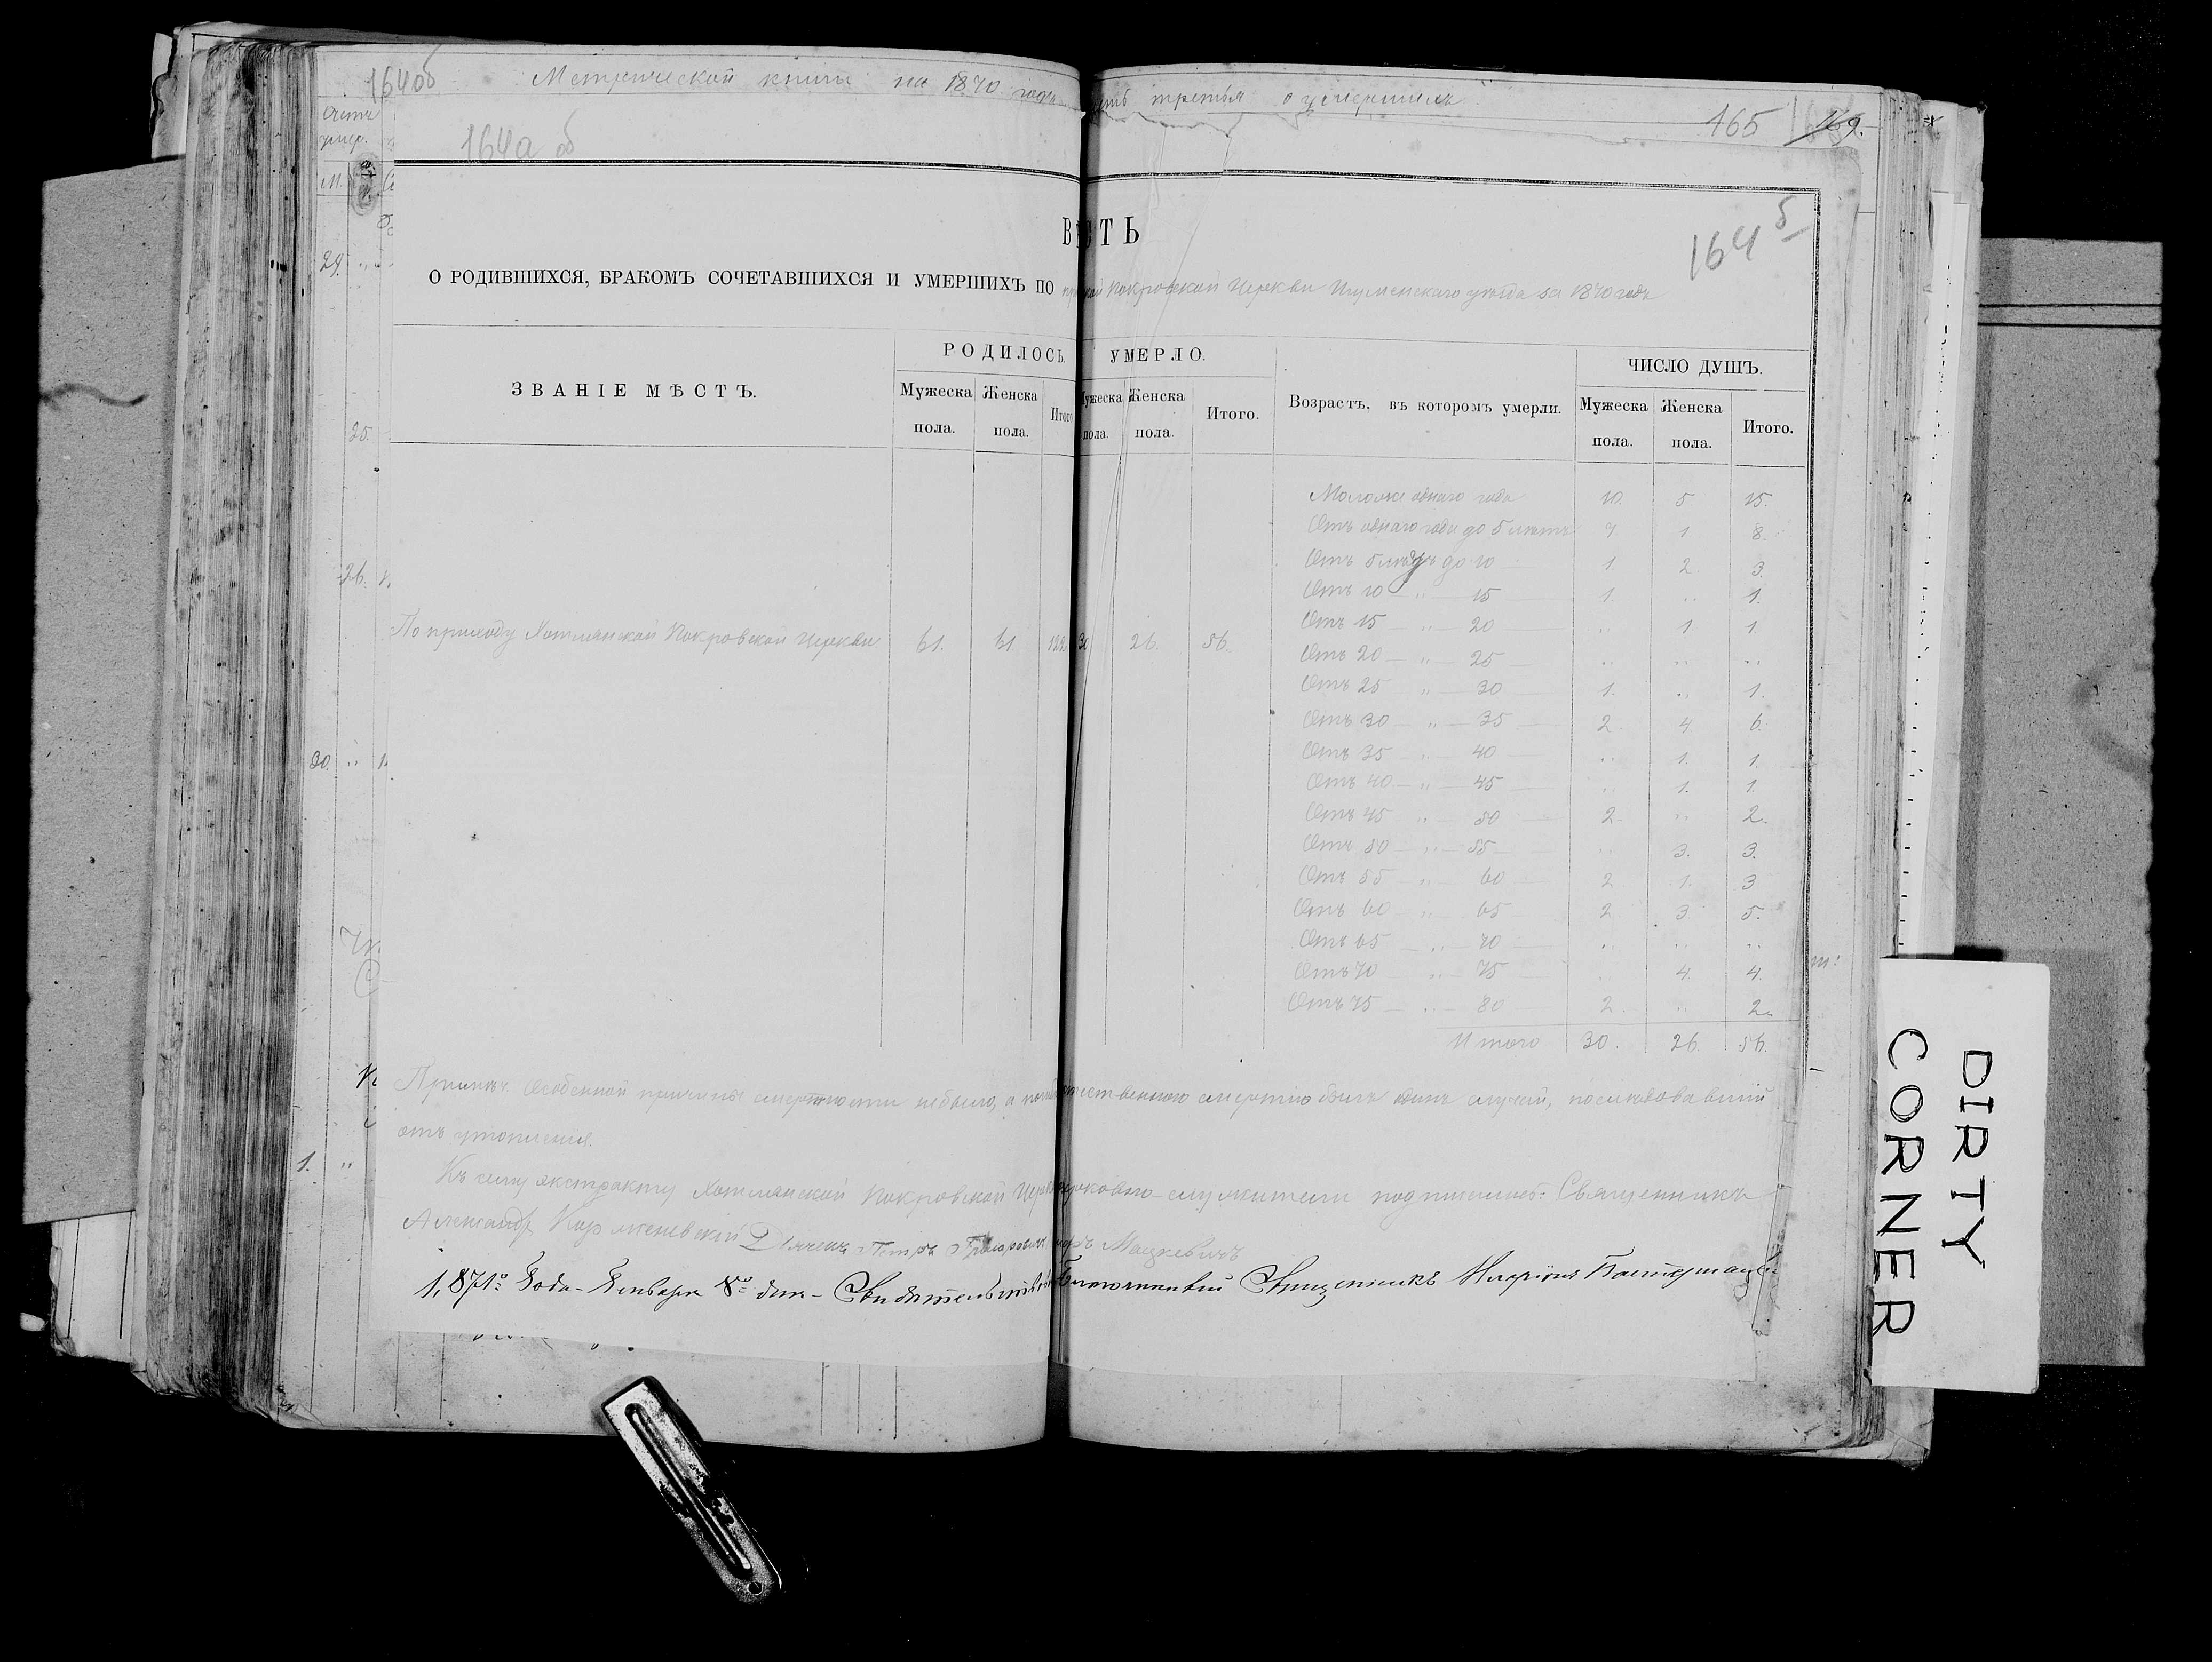 164 об Метрической книги на 1870 годъ третья о умершихъ
165 169.
164а об
164 б
О РОДИВШИХСЯ, БРАКОМЪ СОЧЕТАВШИХСЯ И УМЕРШИХЪ ПО Покровской Церкви Игуменскаго уѣзда за 1870 годъ
ЗВАНІЕ МѢСТЪ. РОДИЛОСЬ. УМЕРЛО. Возрастъ, въ которомъ умерли. ЧИСЛО ДУШЪ.
Мужеска пола. Женска пола. Итого Мужеска пола. Женска пола. Итого. Мужеска пола. Женска пола. Итого.
Моложе однаго года 10. 5 15.
Отъ однаго года до 5 лѣтъ 7 1 8.
Отъ 5 лѣтъ до 10 1 2 3.
Отъ 10 — „ — 15 1. „ 1.
По приходу Хотлянской Покровской Церкви 61. 61. 122. 30 26. 56.
Отъ 15 „ 20 „ 1 1.
Отъ 20 — „ — 25 „ „ „
Отъ 25 „ 30 1. „ 1.
Отъ 30 — „ — 35 2 4 6.
Отъ 35 „ 40 „ 1. 1.
Отъ 40 — „ — 45 „ 1. 1.
Отъ 45 „ 50 2. „ 2.
Отъ 50 — „ — 55 „ 3. 3.
Отъ 55 — „ 60 2 1. 3
Отъ 60 „ 65 2 3 5.
Отъ 65 — „ — 70 „ „ „
Отъ 70 „ 75 „ 4. 4.
Отъ 75 — „ — 80 2. „ 2.
Итого 30. 26. 56.
Примѣч. Особенной причины смертности небыло, а смертію былъ одинъ случай, послѣдовавшій
отъ утопленія.
Къ сему экстракту Хотлянской Покровской Церкви служители подписались: Священникъ
Александръ Дьячекъ Петръ Мацкевичъ
1,871го Года Января 8го дня Благочинный Священникъ
24.
25.
26.
30. „
1. „
DIRTY
CORNER